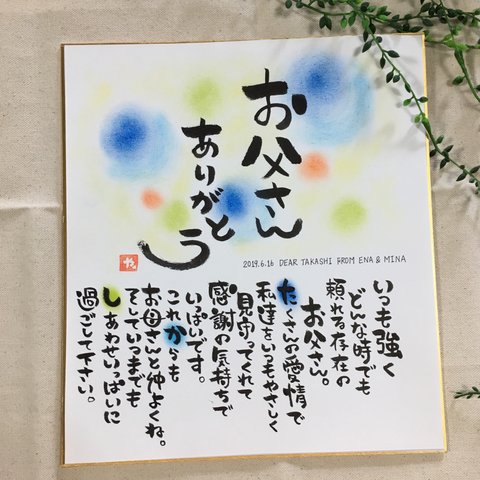 お父さん
ありがとう
2019.6.16 DEAR TAKASHI FROM ENA & MINA
いつも強く
どんな時でも
頼れる存在の
お父さん。
たくさんの愛情で
私達をいつもやさしく
見守ってくれて
感謝の気持ちで
いっぱいです。
これからも
お母さんと仲よくね。
そしていつまでも
しあわせいっぱいに
過ごして下さい。